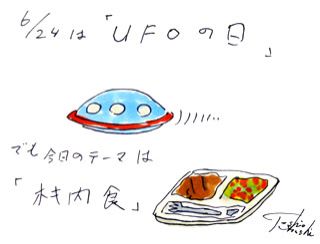 6/24は「UFOの日」
でも今日のテーマは
「機内食」